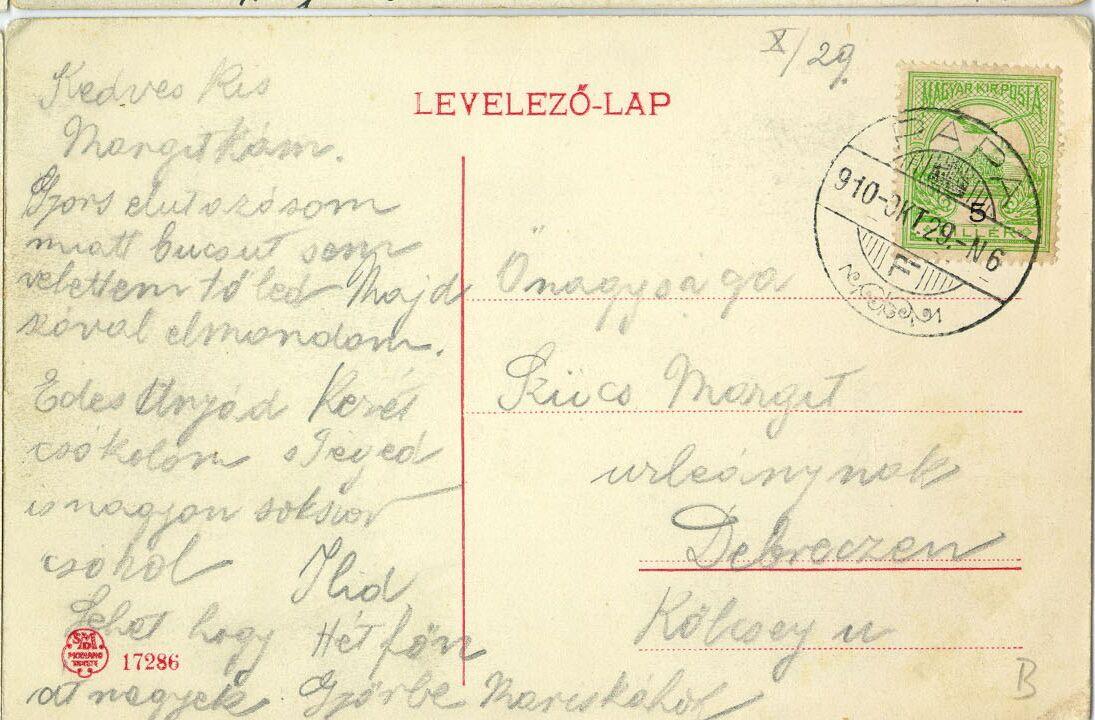 X/29.
LEVELEZŐ-LAP
MAGYAR KIR. POSTA
5
FILLÉR
PÁPA
910-OKT.29.-N6
Kedves Kis
Margitkám.
Gyors elutazásom
miatt bucsut sem
vehettem tőled Majd
szóval elmondom.
Édes Anyád Kezét
csókolom s Téged
is nagyon sokszor
csókol
Ilid
Lehet hogy Hétfőn
át megyek Győrbe Mariskához
Önagysága
Szücs Margit
urleánynak
Debreczen
Kölcsey u
17286
B